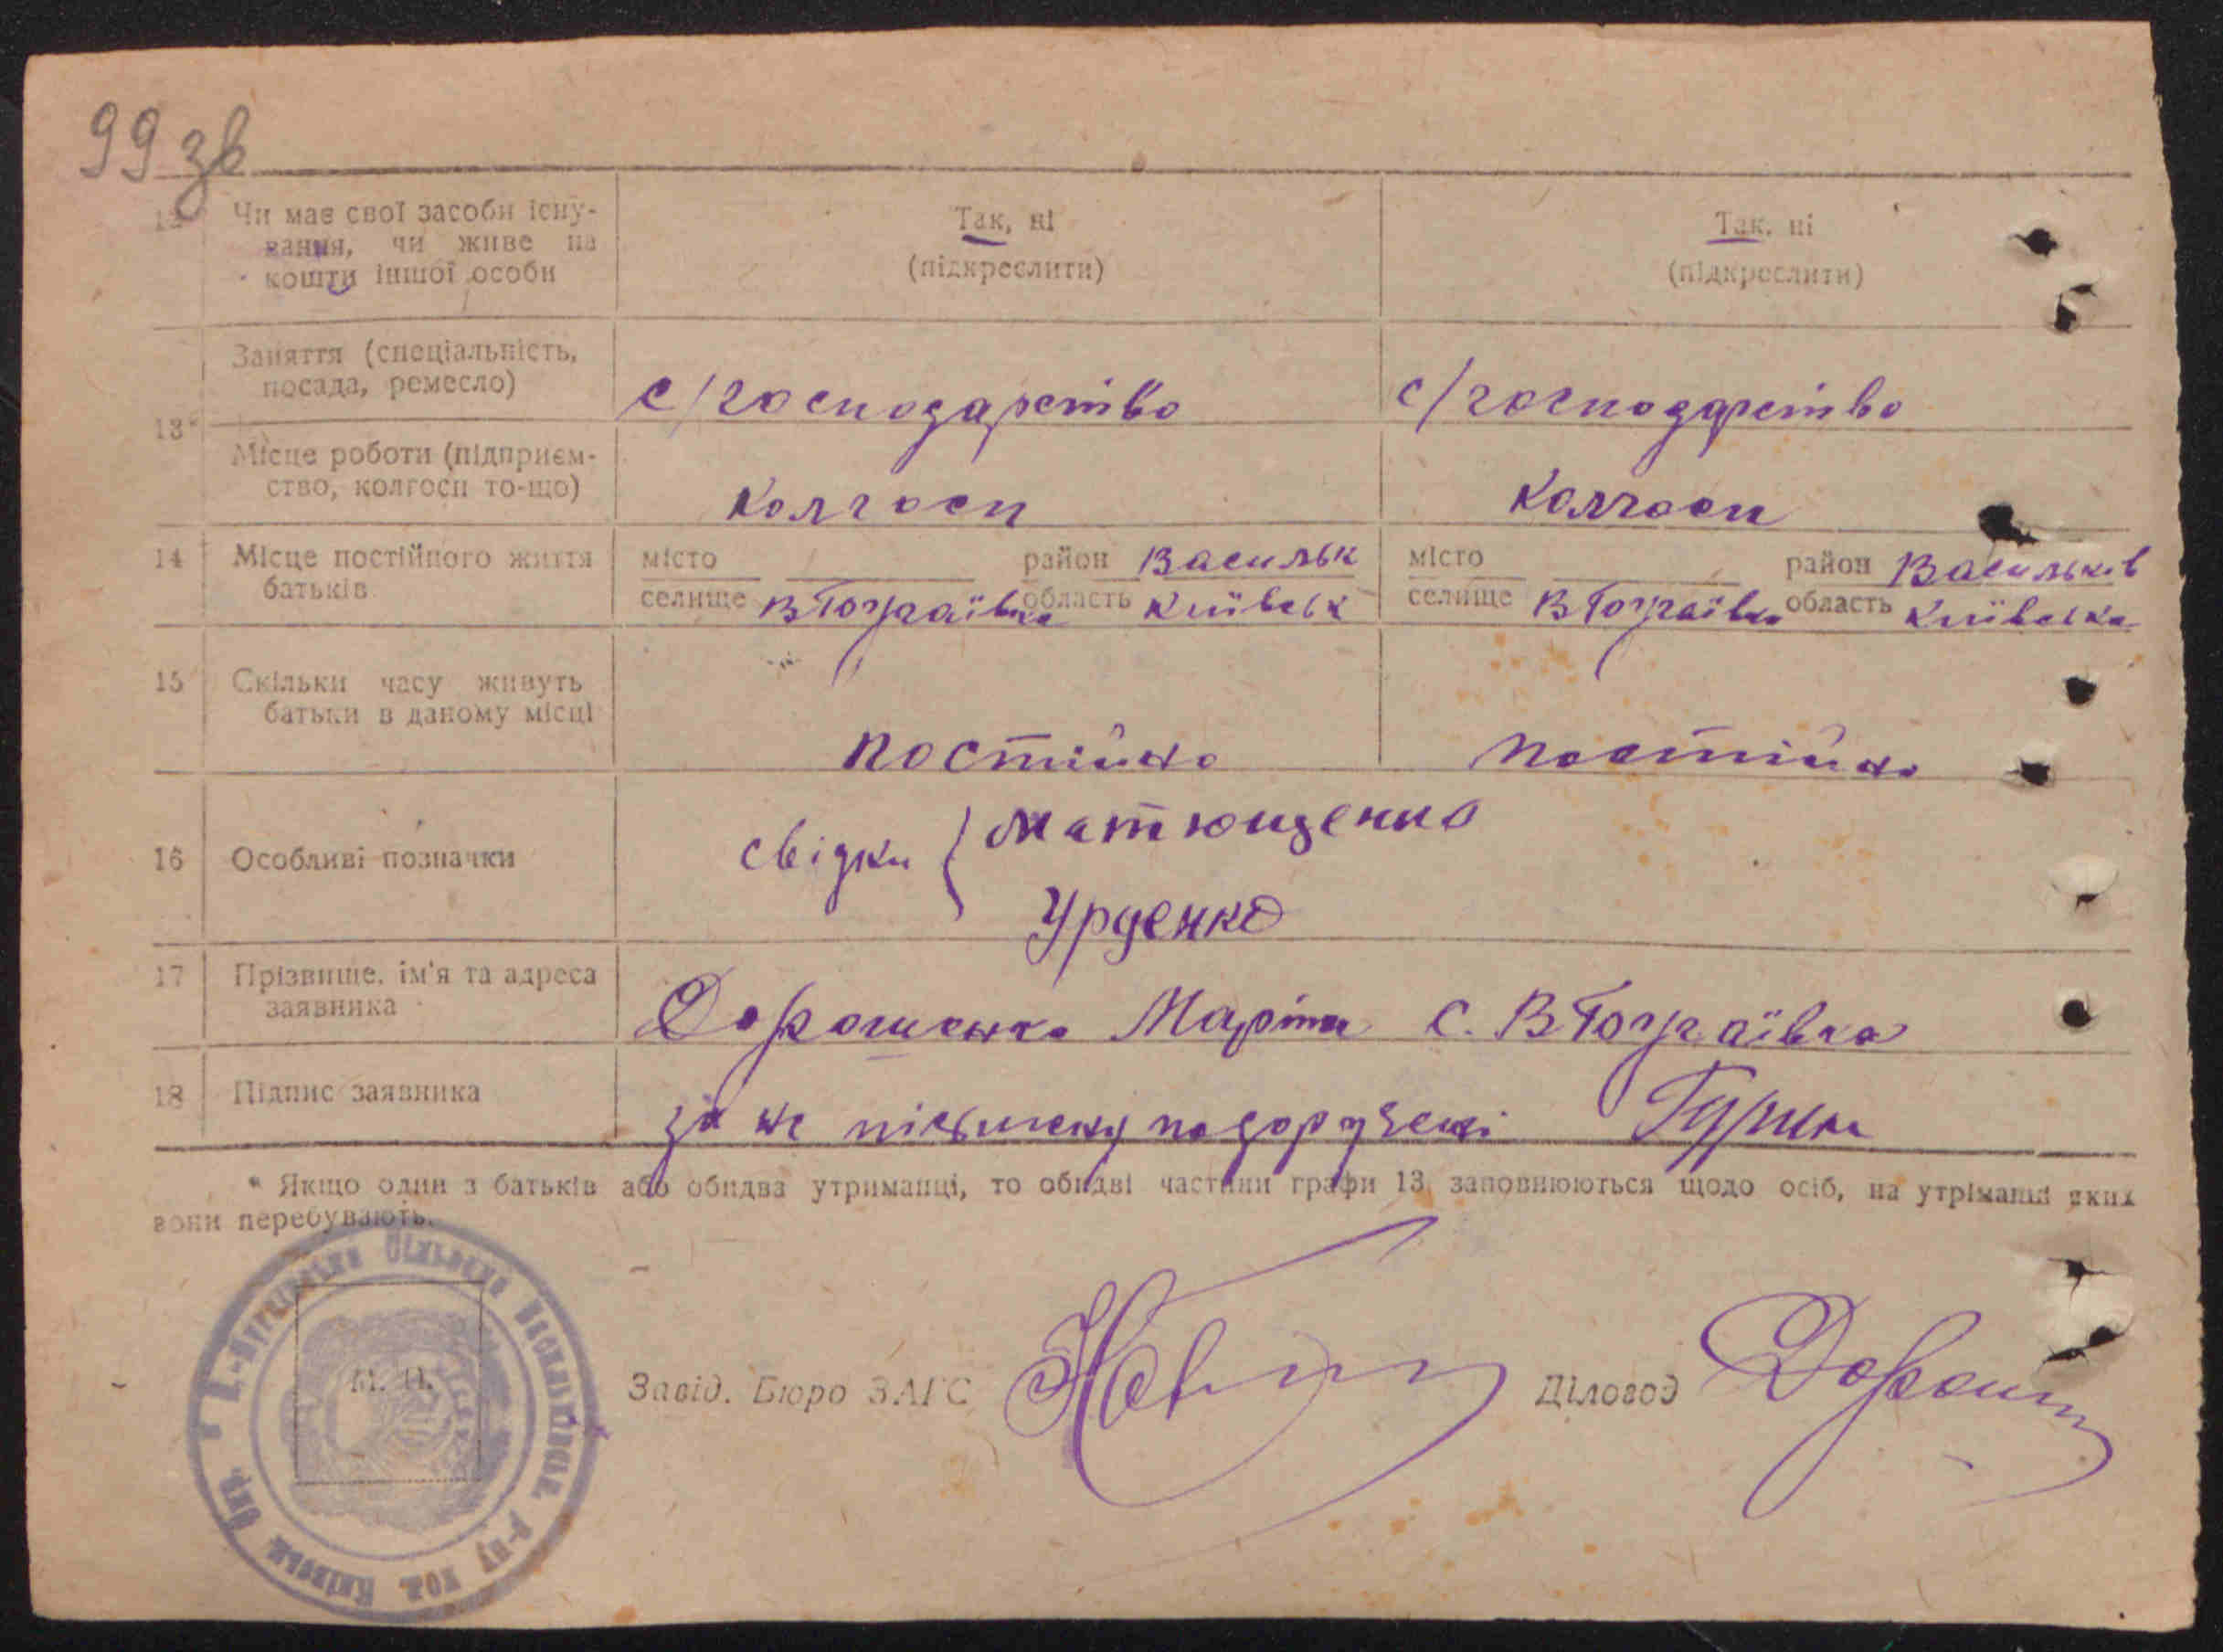 99 зв
12 Чи має свої засоби існу-
вання, чи живе на
кошти іншої особи
Так, ні
(підкреслити)
Так, ні
(підкреслити)
13*
Заняття (спеціальність,
посада, ремесло)
с/господарство
с/господарство
Місце роботи (підприєм-
ство, колгосп то-що)
колгосп
колгосп
14 Місце постійного життя
батьків
місто район Васильк
селище область Київськ
місто район Васильків
селище область Київська
15 Скільки часу живуть
батьки в даному місці
постійно
постійно
16 Особливі позначки
свідки { Матющенко
Урденко
17 Прізвище, ім'я та адреса
заявника
Дорошенко с.
18 Підпис заявника
за не
* Якщо один з батьків або обидва утриманці, то обидві частини графи 13 заповнюються щодо осіб, на утріманні яких
вони перебувають.
М. П.
Завід. Бюро ЗАГС
Діловод Дорош